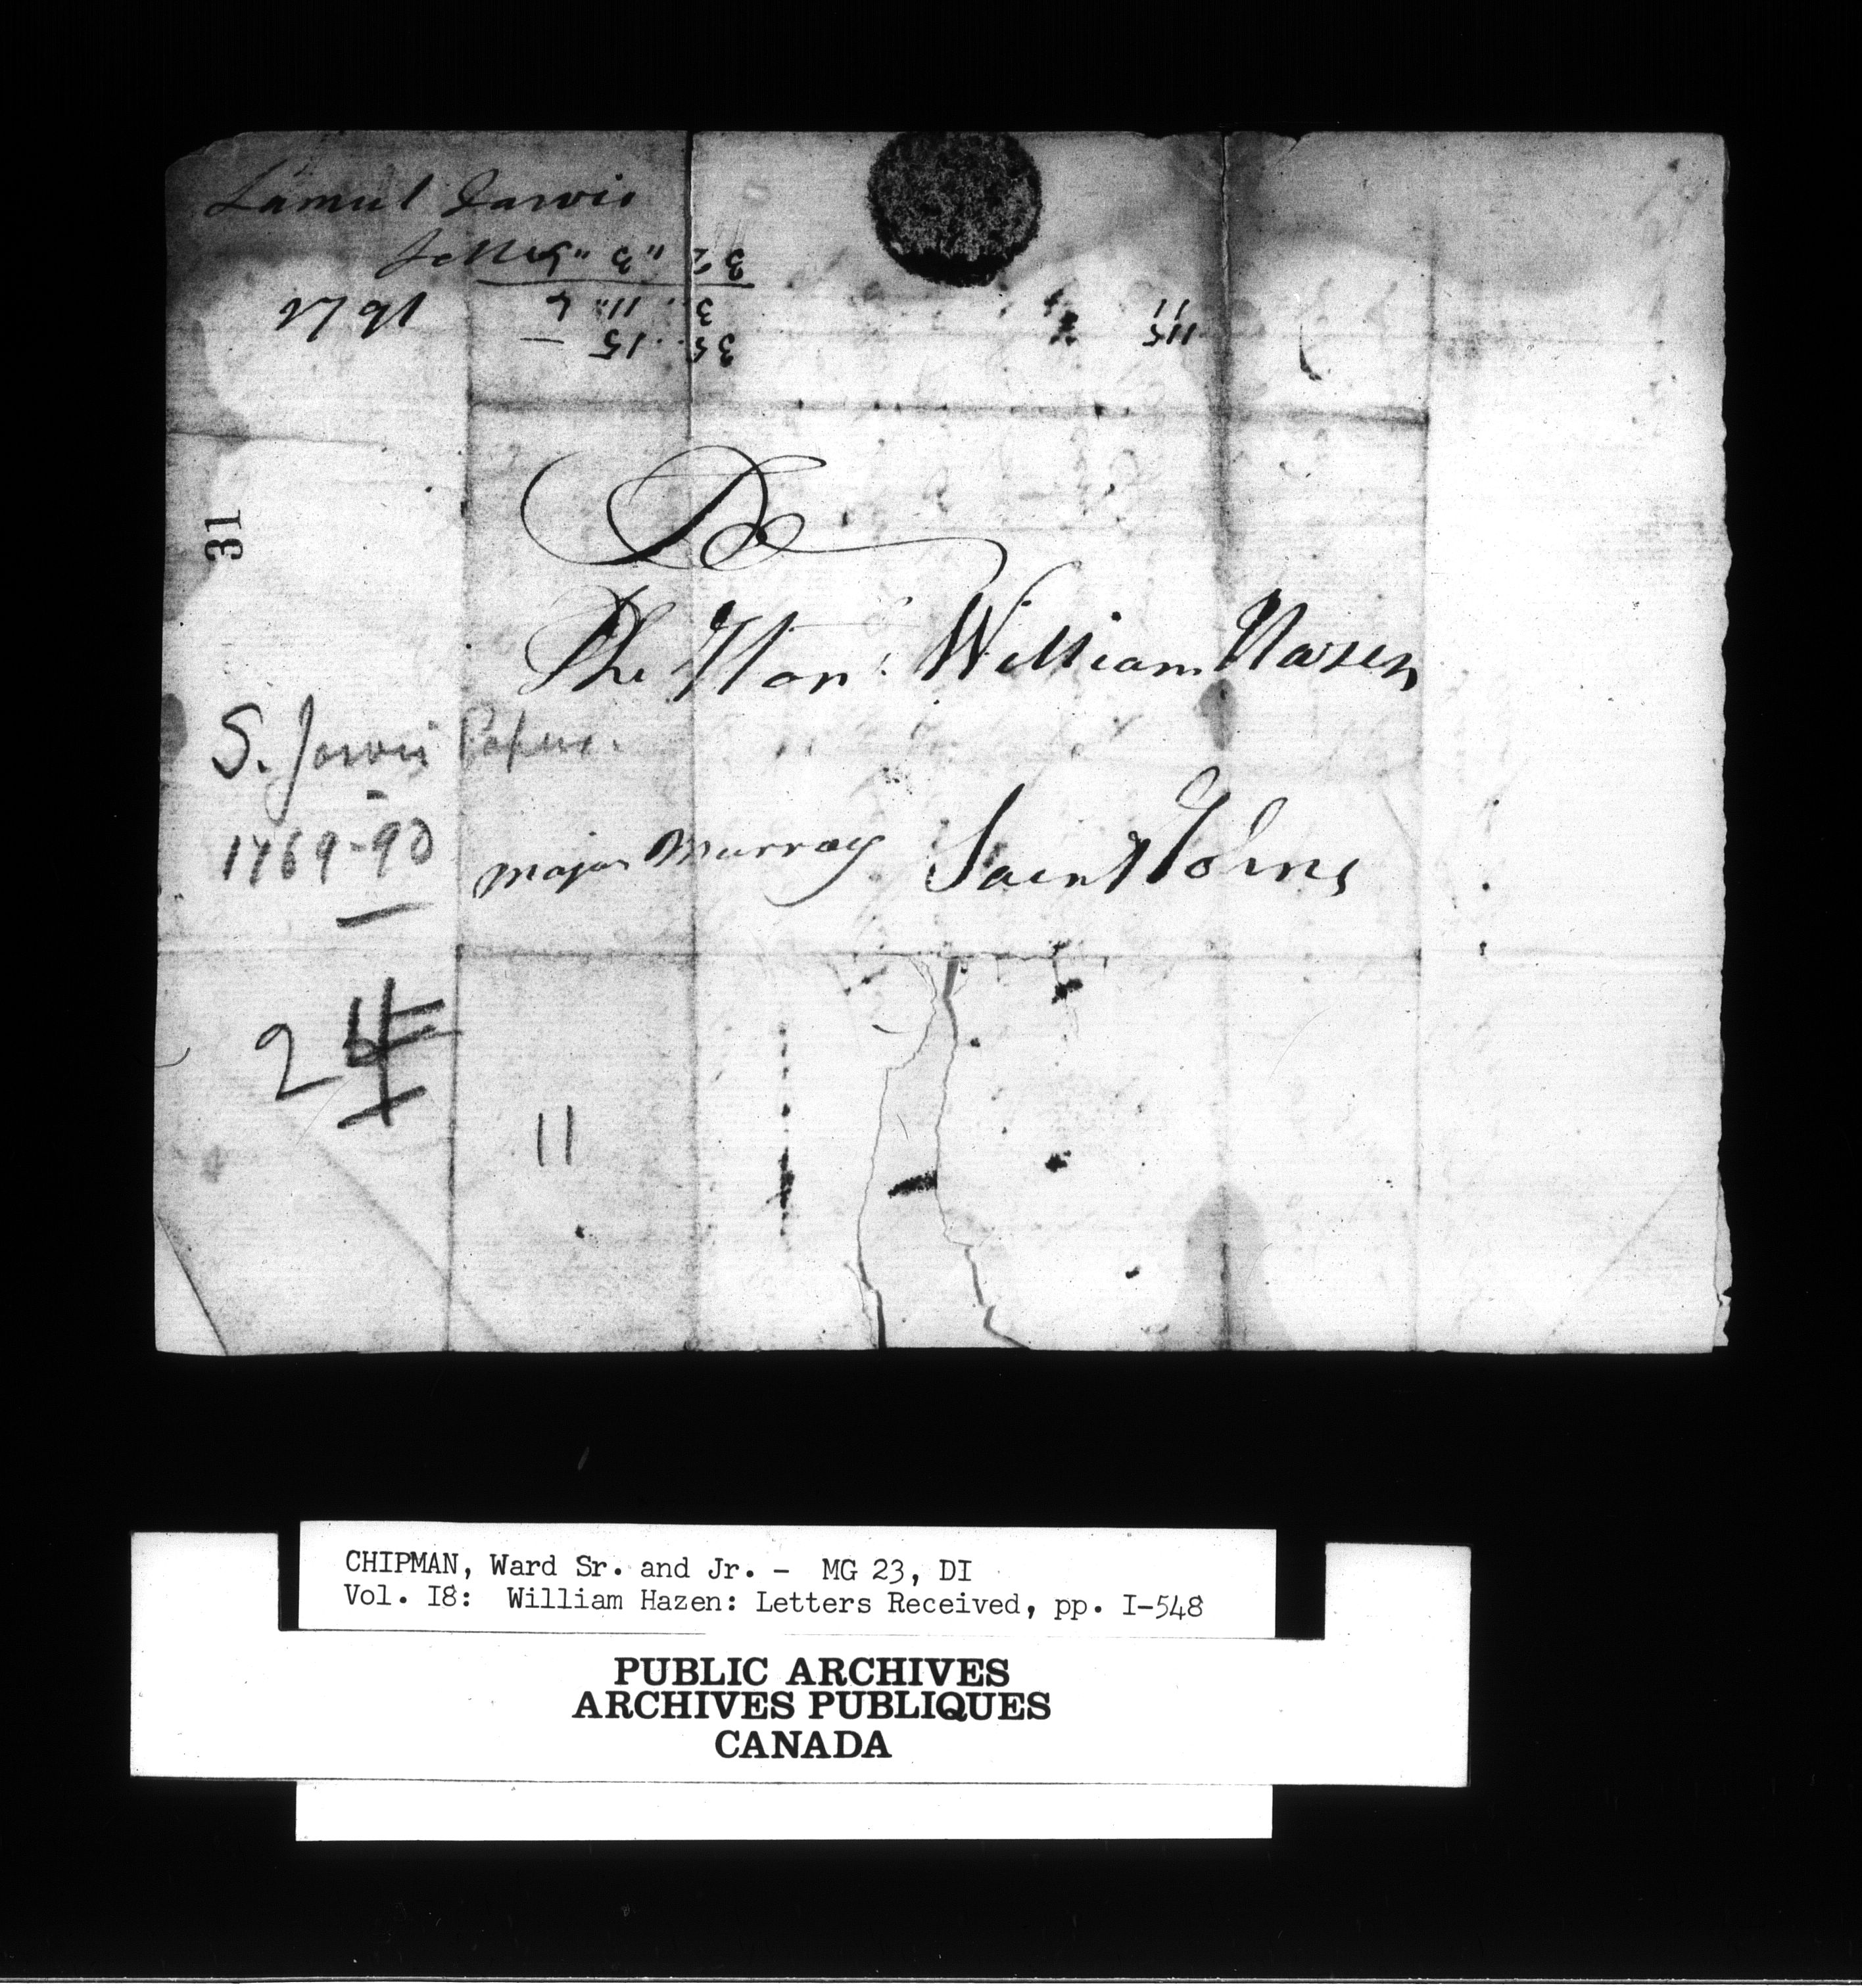 Lamul Jarvis
Letter
1791
35 .. 15 —
3 .. 11 .. 6
32 .. 3 .. 6
115
11
31
To
The Hon. William Hazen
S. Jarvis Papers.
1769-90
major Murray
Saint Johns
24
11
CHIPMAN, Ward Sr. and Jr. - MG 23, DI
Vol. I8: William Hazen: Letters Received, pp. I-548
PUBLIC ARCHIVES
ARCHIVES PUBLIQUES
CANADA